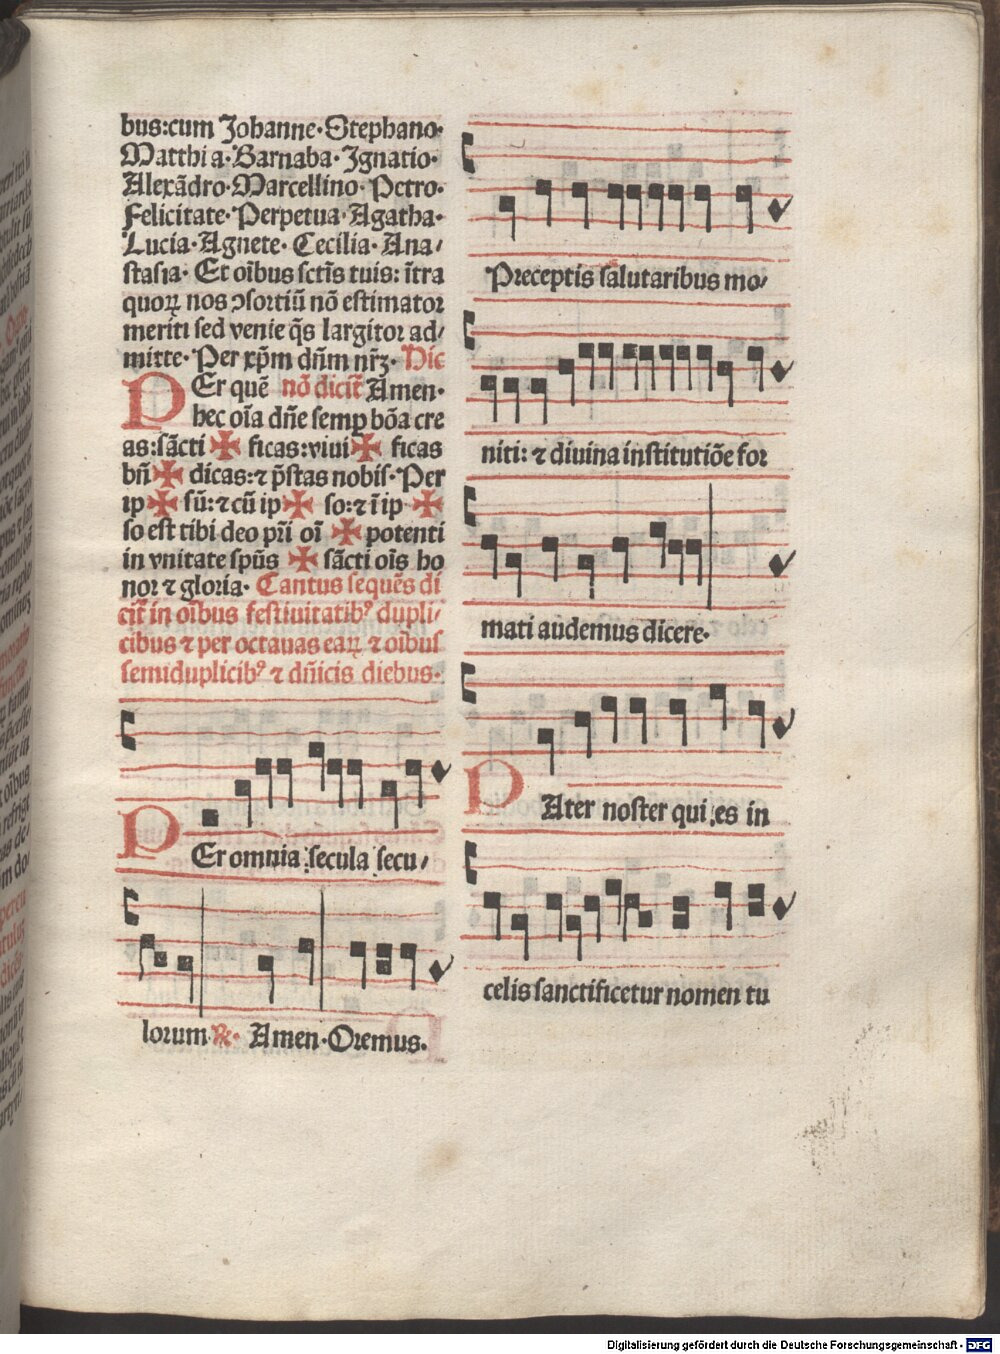 bus:cum Johanne·Stephano·
Matthia·Barnaba·Ignatio·
Alexādro·Marcellino·Petro·
Felicitate·Perpetua·Agatha·
Lucia·Agnete·Cecilia·Ana/
stasia·Et oības sctīs tuis: ītra
quoꝝ nos ↄsortiū nō estimator
meriti sed venie q̄s largitor ad/
mitte·Per xp̄m dn̄m nr̄ꝫ·Dic
PEr quē nō dicit̄ Amen·
hec oīa dn̄e semꝑ bōa cre
as:sācti ✠ ficas:viui ✠ ficas
bn̄ ✠ dicas:⁊ p̄stas nobis·Per
ip ✠ sū:⁊ cū ip ✠ so:⁊ ī ip ✠
so est tibi deo pr̄i oī ✠ potenti
in vnitate spūs ✠ sācti oīs ho
nor ⁊ gloria·Cantus sequēs di
cit̄ in oībus festiuitatibꝰ dupli/
cibus ⁊ per octauas eaꝝ ⁊ oībus
semiduplicibꝰ ⁊ dn̄icis diebus·
PEr omnia secula secu/
lorum ℟· Amen·Oremus.
Preceptis salutaribus mo/
niti: ⁊ diuina institutiōe for
mati audemus dicere·
PAter noster qui es in
celis sanctificetur nomen tu
Digitalisierung gefördert durch die Deutsche Forschungsgemeinschaft · DFG